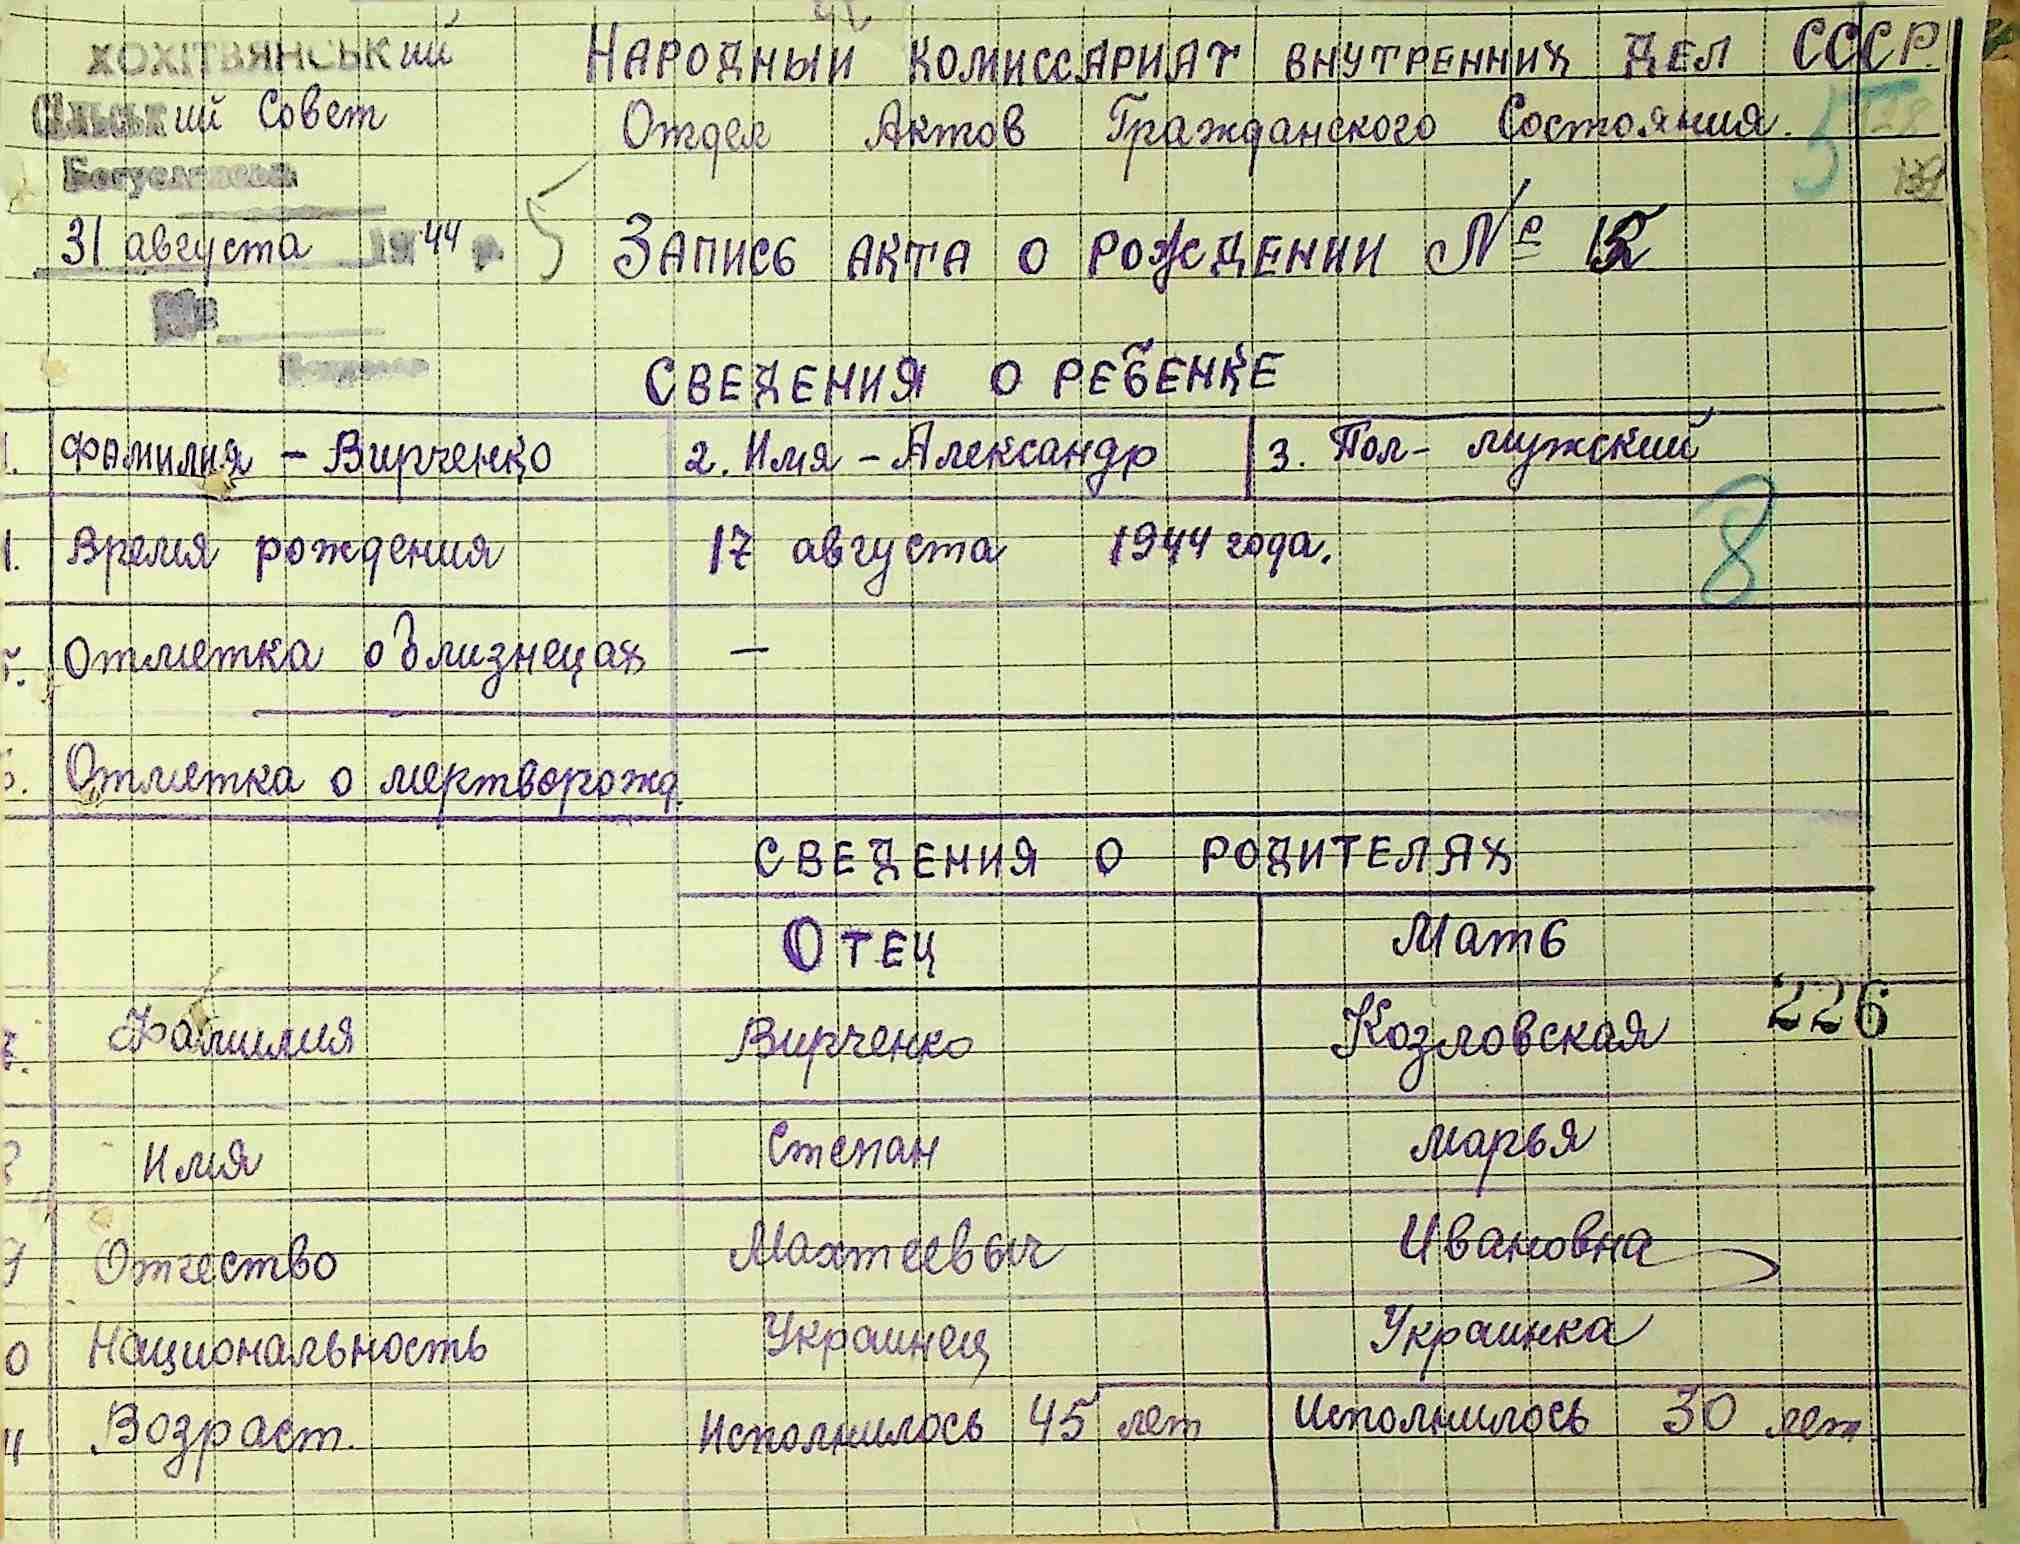 ХОХІТВЯНСЬКий
Сільський Совет
31 августа 1944 р.
Народный комиссариат внутренних дел СССР.
Отдел Актов Гражданского Состояния.
5
5
Запись акта о рождении №
Сведения о ребенке
1. Фамилия – Вирченко 2. Имя – Александр 3. Пол – мужский
Время рождения 17 августа 1944 года.
8
5. Отметка о близнецах –
6. Отметка о мертворожд.
Сведения о родителях
Отец Мать
7. Фамилия Вирченко Козловская 226
8 Имя Степан Марья
9 Отчество Махтеевыч Ивановна
10 Национальность Украинец Украинка
11 Возраст. Исполнилось 45 лет Исполнилось 30 лет